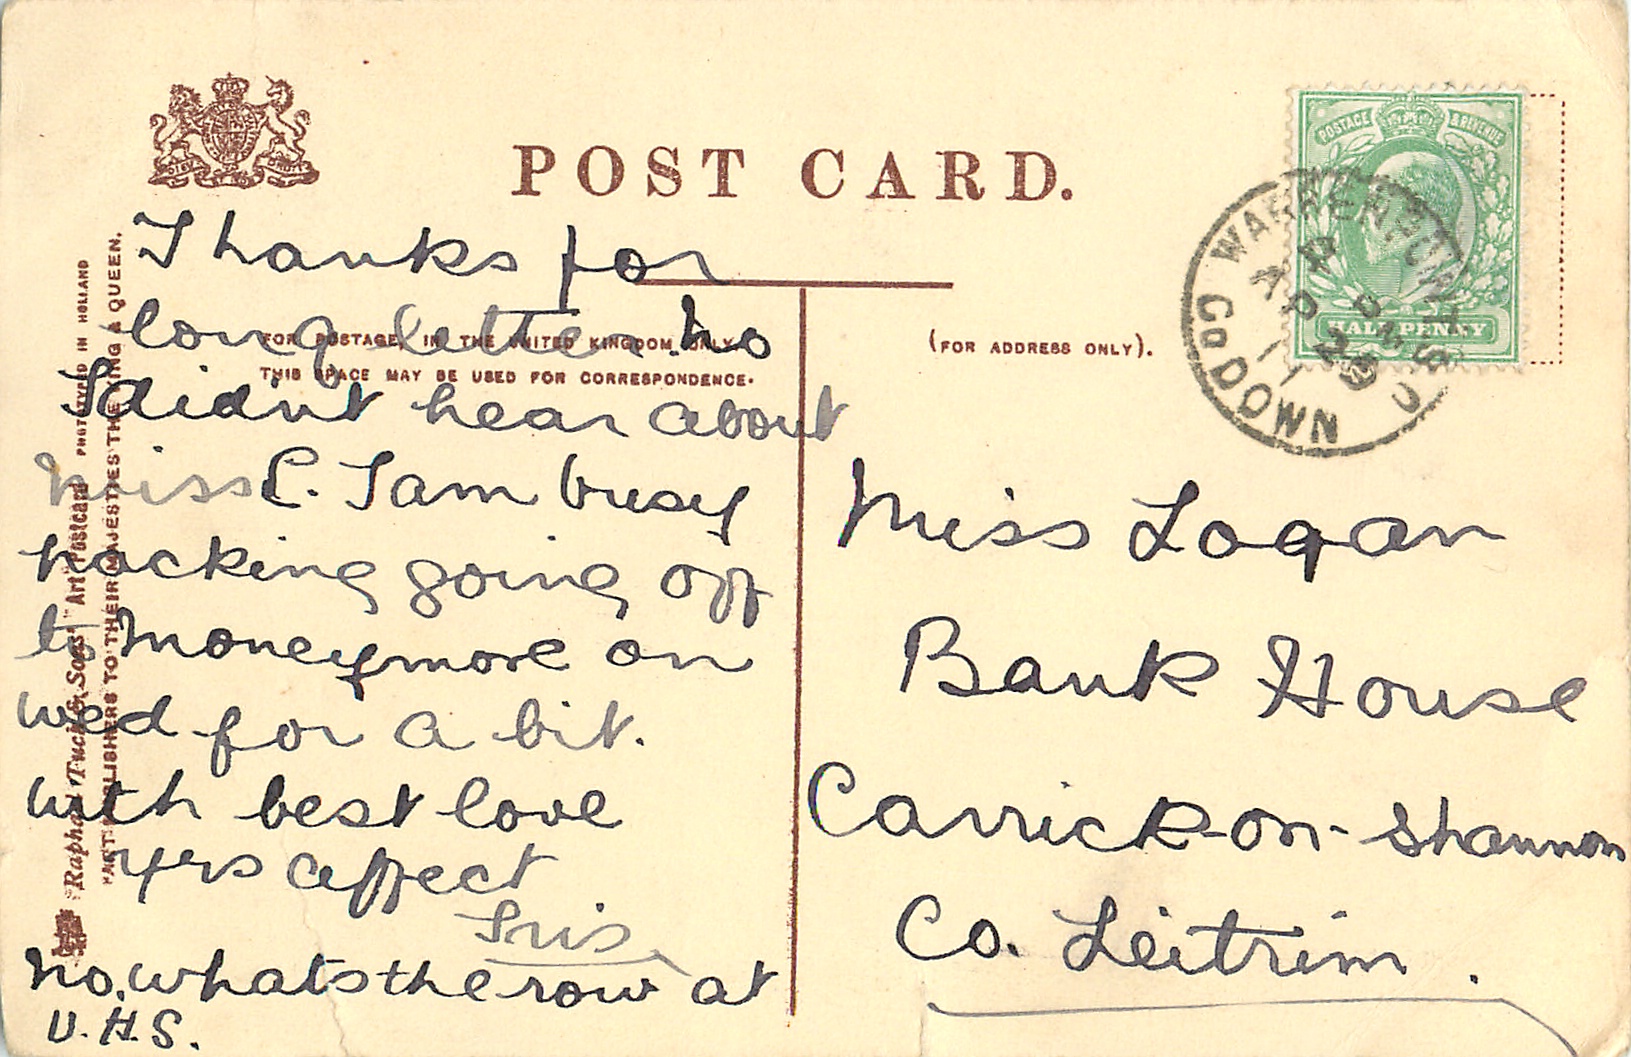 POST CARD.
Thanks for
long letter. No
FOR POSTAGE, IN THE UNITED KINGDOM ONLY,
THIS SPACE MAY BE USED FOR CORRESPONDENCE.
(FOR ADDRESS ONLY).
I didn't hear about
Miss L. I am busy
packing going off
to Moneymore on
Wed for a bit.
With best love
yrs affect
Iris
No, whats the row at
U.H.S.
Miss Logan
Bank House
Carrick-on-Shannon
Co. Leitrim.
POSTAGE & REVENUE
HALFPENNY
WARRENPOINT
Co DOWN
AP 29
"Raphael Tuck & Sons' "Art" Postcard
PHOTOTYPED IN HOLLAND
"ART" PUBLISHERS TO THEIR MAJESTIES THE KING & QUEEN.